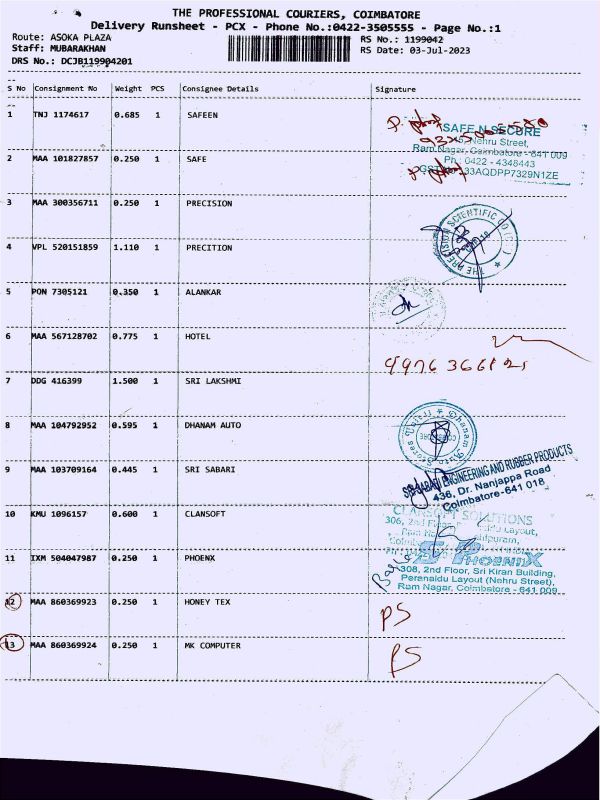 THE PROFESSIONAL COURIERS, COIMBATORE
Delivery Runsheet - PCX - Phone No.:0422-3505555 - Page No.:1
Route: ASOKA PLAZA RS No.: 1199042
Staff: MUBARAKHAN RS Date: 03-Jul-2023
DRS No.: DCJB119904201
S No Consignment No Weight PCS Consignee Details Signature
1 TNJ 1174617 0.685 1 SAFEEN
SAFE N SECURE
Nehru Street,
Ram Nagar, Coimbatore - 641 009
Ph : 0422 - 4348443
33AQDPP7329N1ZE
2 MAA 101827857 0.250 1 SAFE
3 MAA 300356711 0.250 1 PRECISION
THE PRECISION SCIENTIFIC CO
4 VPL 520151859 1.110 1 PRECITION
5 PON 7305121 0.350 1 ALANKAR
6 MAA 567128702 0.775 1 HOTEL
7 DDG 416399 1.500 1 SRI LAKSHMI
8 MAA 104792952 0.595 1 DHANAM AUTO
Dhanam Auto Stores
9 MAA 103709164 0.445 1 SRI SABARI
SABARI ENGINEERING AND RUBBER PRODUCTS
436, Dr. Nanjappa Road
Coimbatore-641 018
10 KMU 1096157 0.600 1 CLANSOFT
CLANSOFT SOLUTIONS
306, 2nd Floor Layout,
11 IXM 504047987 0.250 1 PHOENX
PHOENIX
308, 2nd Floor, Sri Kiran Building,
Peranaidu Layout (Nehru Street),
Ram Nagar, Coimbatore - 641 009
12 MAA 860369923 0.250 1 HONEY TEX PS
13 MAA 860369924 0.250 1 MK COMPUTER PS